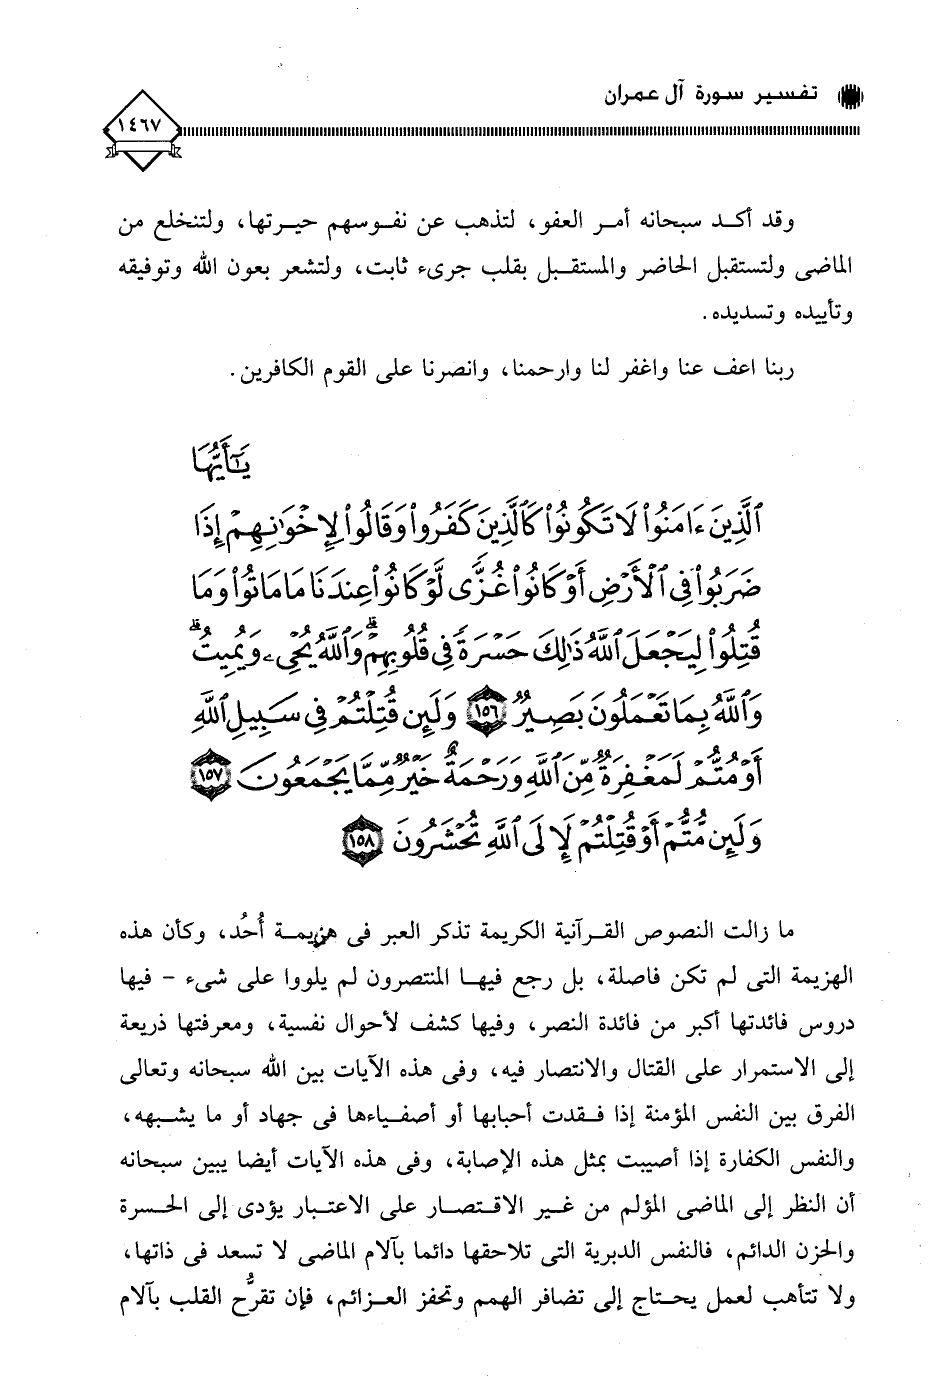 تفسير سورة آل عمران
١٤٦٧
وقد أكد سبحانه أمر العفو، لتذهب عن نفوسهم حيرتها، ولتنخلع من
الماضى ولتستقبل الحاضر والمستقبل بقلب جرىء ثابت، ولتشعر بعون الله وتوفيقه
وتأييده وتسديده.
ربنا اعف عنا واغفر لنا وارحمنا، وانصرنا على القوم الكافرين.
يَٰٓأَيُّهَا
ٱلَّذِينَ ءَامَنُواْ لَا تَكُونُواْ كَٱلَّذِينَ كَفَرُواْ وَقَالُواْ لِإِخْوَٰنِهِمْ إِذَا
ضَرَبُواْ فِى ٱلْأَرْضِ أَوْ كَانُواْ غُزًّى لَّوْ كَانُواْ عِندَنَا مَا مَاتُواْ وَمَا
قُتِلُواْ لِيَجْعَلَ ٱللَّهُ ذَٰلِكَ حَسْرَةً فِى قُلُوبِهِمْ ۗ وَٱللَّهُ يُحْىِۦ وَيُمِيتُ ۗ
وَٱللَّهُ بِمَا تَعْمَلُونَ بَصِيرٌ ١٥٦ وَلَئِن قُتِلْتُمْ فِى سَبِيلِ ٱللَّهِ
أَوْ مُتُّمْ لَمَغْفِرَةٌ مِّنَ ٱللَّهِ وَرَحْمَةٌ خَيْرٌ مِّمَّا يَجْمَعُونَ ١٥٧
وَلَئِن مُّتُّمْ أَوْ قُتِلْتُمْ لَإِلَى ٱللَّهِ تُحْشَرُونَ ١٥٨
ما زالت النصوص القرآنية الكريمة تذكر العبر فى هزيمة أُحُد، وكأن هذه
الهزيمة التى لم تكن فاصلة، بل رجع فيها المنتصرون لم يلووا على شىء - فيها
دروس فائدتها أكبر من فائدة النصر، وفيها كشف لأحوال نفسية، ومعرفتها ذريعة
إلى الاستمرار على القتال والانتصار فيه، وفى هذه الآيات بين الله سبحانه وتعالى
الفرق بين النفس المؤمنة إذا فقدت أحبابها أو أصفياءها فى جهاد أو ما يشبهه،
والنفس الكفارة إذا أصيبت بمثل هذه الإصابة، وفى هذه الآيات أيضا يبين سبحانه
أن النظر إلى الماضى المؤلم من غير الاقتصار على الاعتبار يؤدى إلى الحسرة
والحزن الدائم، فالنفس الدبرية التى تلاحقها دائما بآلام الماضى لا تسعد فى ذاتها،
ولا تتأهب لعمل يحتاج إلى تضافر الهمم وتحفز العزائم، فإن تقرُّح القلب بآلام